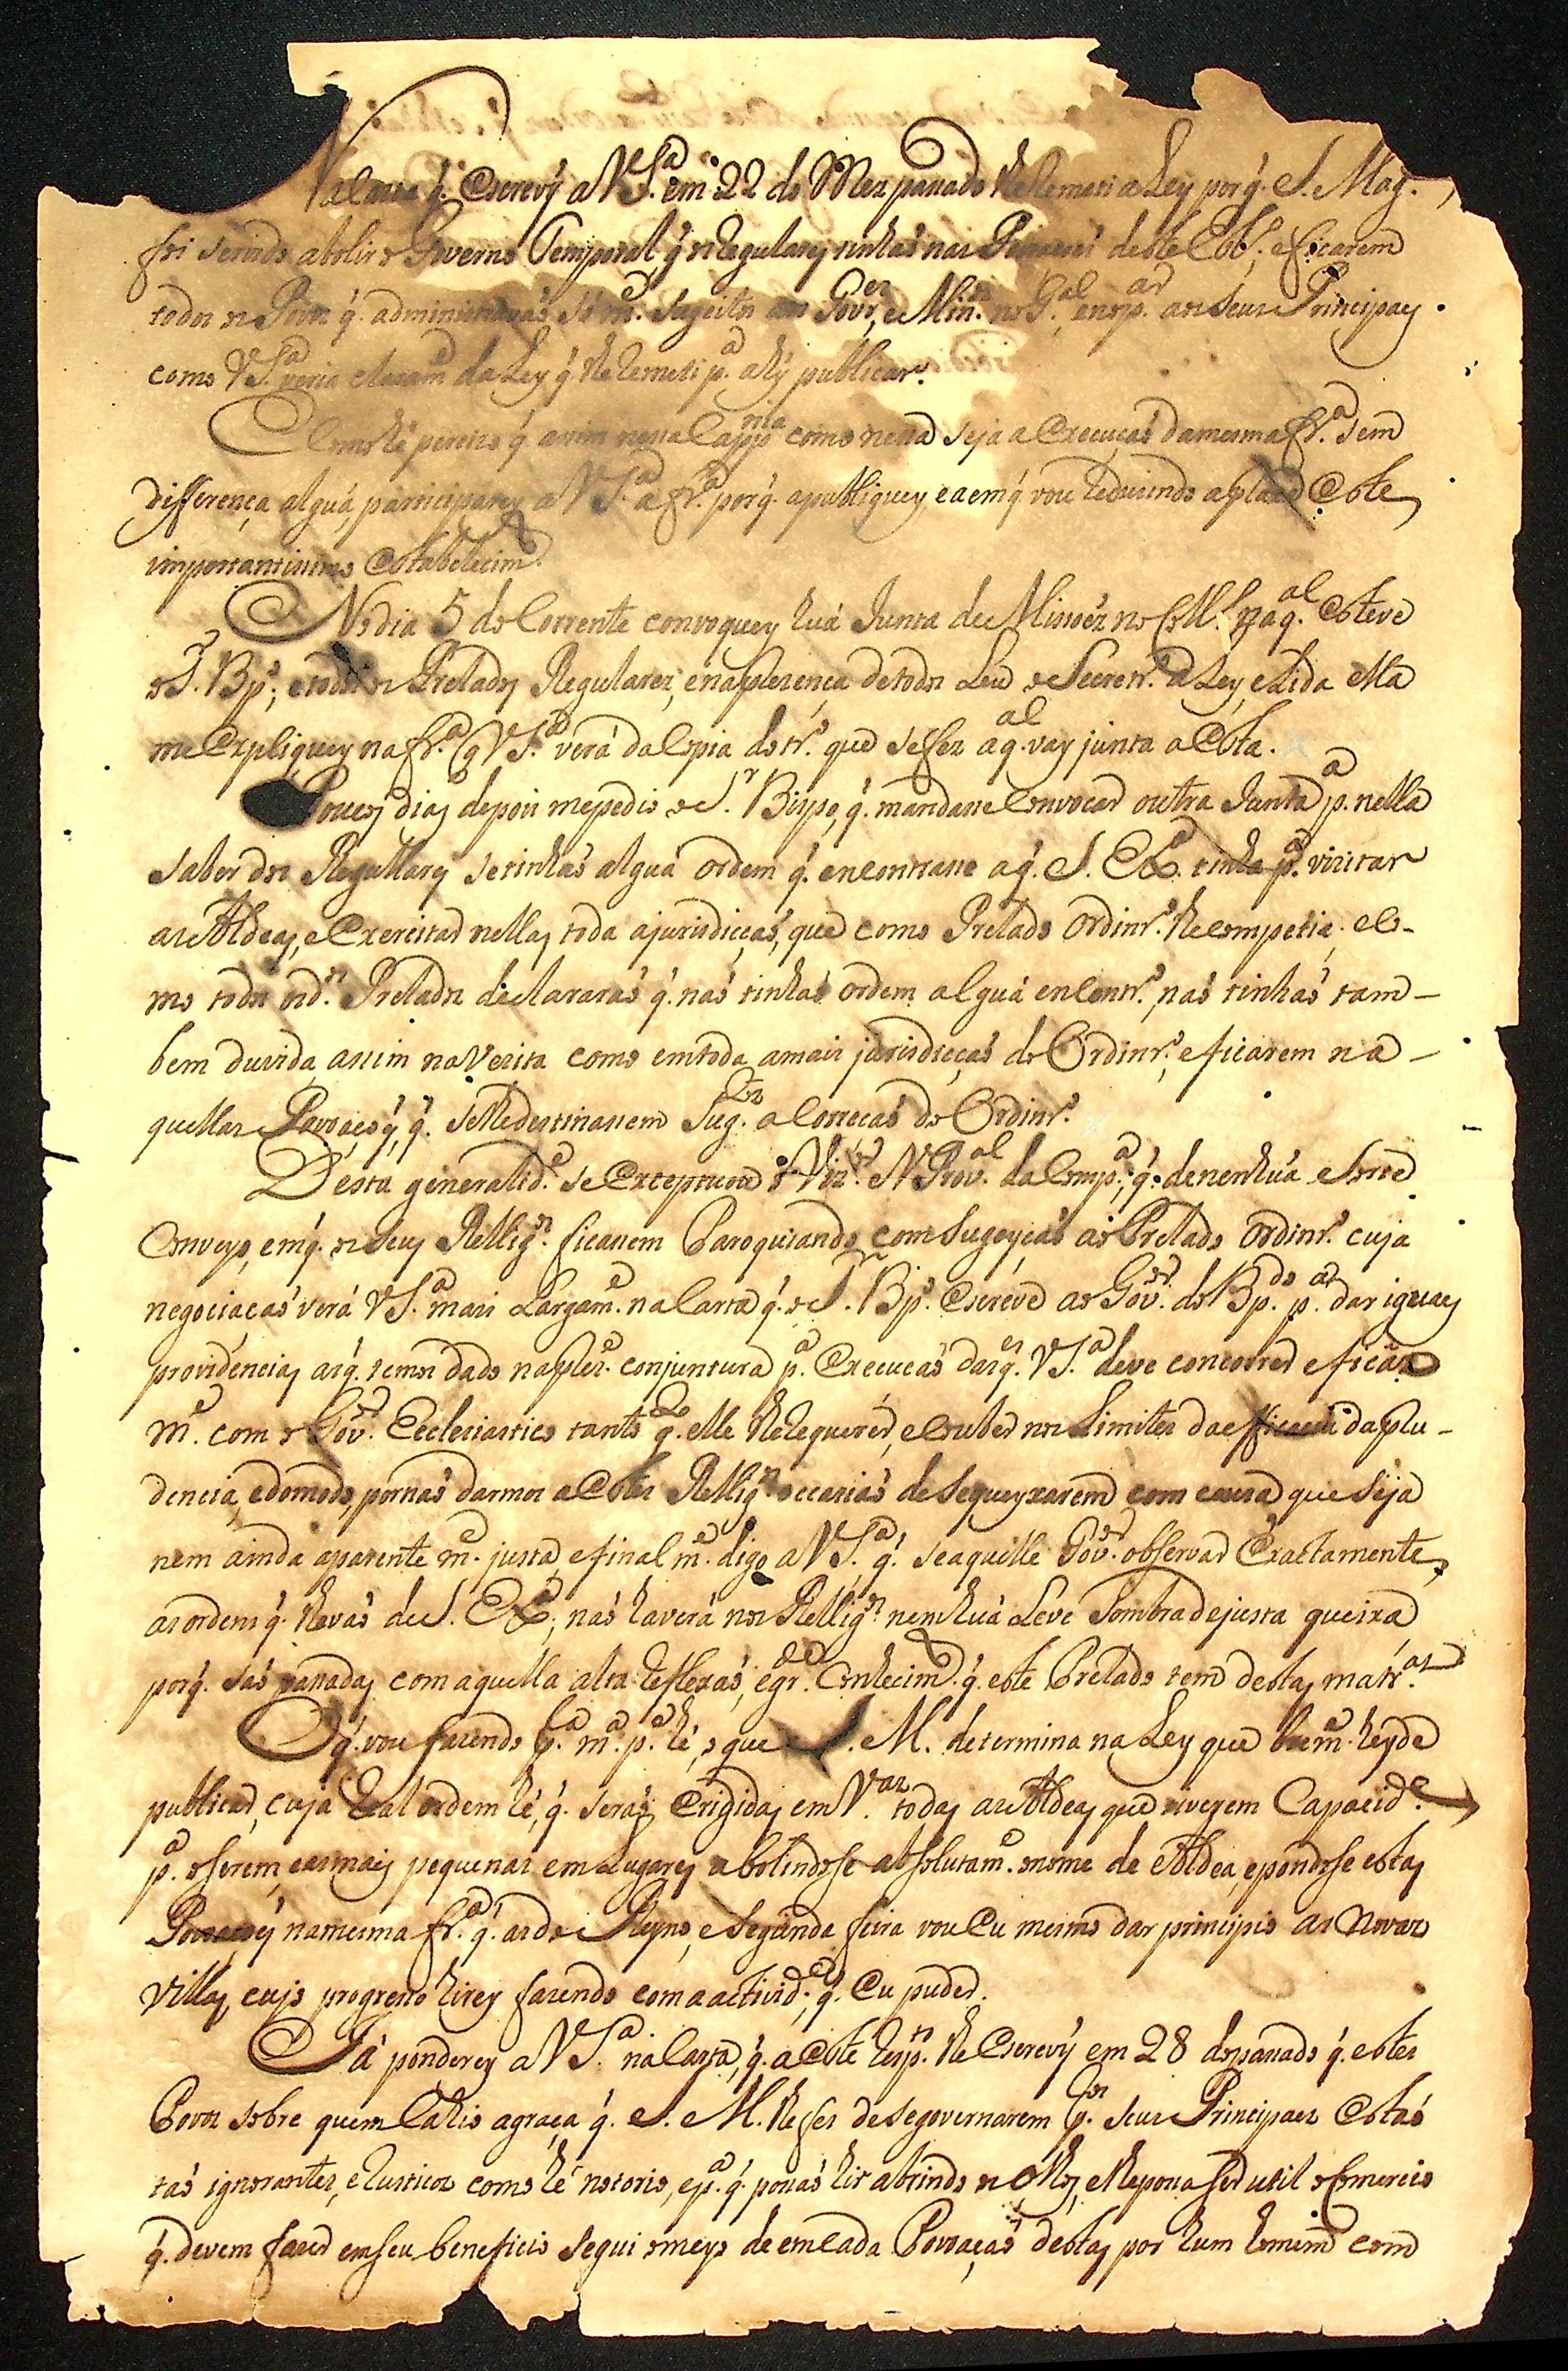 Na Carta q̃. Escrevy a V S.ª em 22 do Mez passado lhe Remeti a Ley por q̃. S. Mag.
foi servido abolir o Governo Temporal, q̃ os Regulares tinhaõ nas deste Est.º, e ficarem
todos os Povos q̃. administravaõ Sugeitos aos Gov.es, e Min.os no G.al, e no p.ar aos Seus Principaes.
como V S.ª veria claram.e da Ley q̃. lhe Remeti p.ª ahy publicar.
E Como hé percizo q̃. assim nessa Capp.nia como nesta seja a Execuçaõ da mesma fr.ª sem
differença alguã, participarey a V S.ª a fr.ª por q̃. a publiquey, e a em q̃ vou reduzindo a Este
importantissimo Estabelecim.to
No dia 5 do Corrente convoquey huã Junta de Missoẽz no Coll.º na q.al Esteve
o S.r Bp.º, e todos os Prelados Regulares, e na prezença de todos Leu o Secretr.º a Ley, e Lida Ella
me Expliquey na fr.ª q̃ V S.ª verá da Copia do tr.º que se fez a q.al vay junta a Esta.
Poucos dias depois me pedio o S.r Bispo, q̃. mandasse Convocar outra Junta p.ª nella
Saber dos Regullares se tinhaõ alguã ordem q̃. encontrasse a q̃. S. Ex.ª tinha p.ª vizitar
as Aldeas, e Exercitar nellas toda a jurisdicçaõ, que como Prelado Ordinr.º lhe competia; e Co-
mo todos os d.os Prelados declararaõ q̃. naõ tinhaõ ordem alguã en Contr.º, naõ tinhaõ tam-
bem duvida assim na Vezita como em toda a mais jurisdicçaõ do Ordinr.º, e ficarem na-
quellas Povoaçoẽs, q̃. se lhe destinassem Sug.tos a Correcaõ do Ordinr.º
Desta generalid.e se Exceptuou o Viz.or e V Prov.al da Comp.ª, q̃. de nenhuã Sorte
Conveyo, em q̃. os Seus Rellig.os ficassem Paroquiando com Sugeyçaõ ao Prelado Ordinr.º cuja
negociacaõ verá V S.ª mais Largam.e na Carta q̃. o S.r Bp.º Escreve ao Gov.or do Bp.do p.ª dar iguaes
providencias as q̃. temos dado na prez.e conjuntura p.ª Execucaõ das q.es V S.ª deve concorrer eficâz
m.e com o Gov.or Ecclesiastico tanto q.do elle lhe requerer, e Couber nos Limites da efficacia da pru-
dencia, e do modo, por naõ darmos a Estes Rellig.os occasiaõ de se queyxarem com causa que seja
nem ainda aparente m.e justa, e final m.e digo a V S.ª q̃. se aquelle Gov.or observar Exactamente,
as ordens q̃. levaõ de S. Ex.ª, naõ haverá nos Rellig.os nem huã Leve Sombra de justa queixa
porq̃. saõ passadas com aquella alta reflexaõ, e gr.de Conhecim.to q̃. este Prelado tem destas matr.as
O q̃. vou fazendo p.ª m.ª p.e hé, o que S. M. determina na Ley que brevem.e hey de
publicar, cuja Real ordem hé, q̃. seraõ Erigidas em V.as todas as Aldeas que tiverem Capacid.e
p.ª o serem, e as mais pequenas em Lugares abolindose absolutam.e o nome de Aldea, e pondose estas
Povoaçoẽs na mesma fr.ª q̃. as do Reyno, e Segunda feira vou Eu mesmo dar principio as Novas
Villas, cujo progresso hirey fazendo com a activid.e, q̃. Eu puder.
Já ponderey a V S.ª na Carta, q̃. a Este resp.to lhe Escrevy em 28 do passado q̃. estes
Povos sobre quem Cahio a graça q̃. S. M. lhe fez de se governarem p.los Seus Principaes Estaõ
taõ ignorantes, e rusticos como hé notorio, e p.ª q̃. possaõ hir abrindo os Olhos, e lhe possa ser util o Comercio
q̃. devem fazer em seu beneficio Segui o meyo de em Cada Povoaçaõ destas por hum homem com